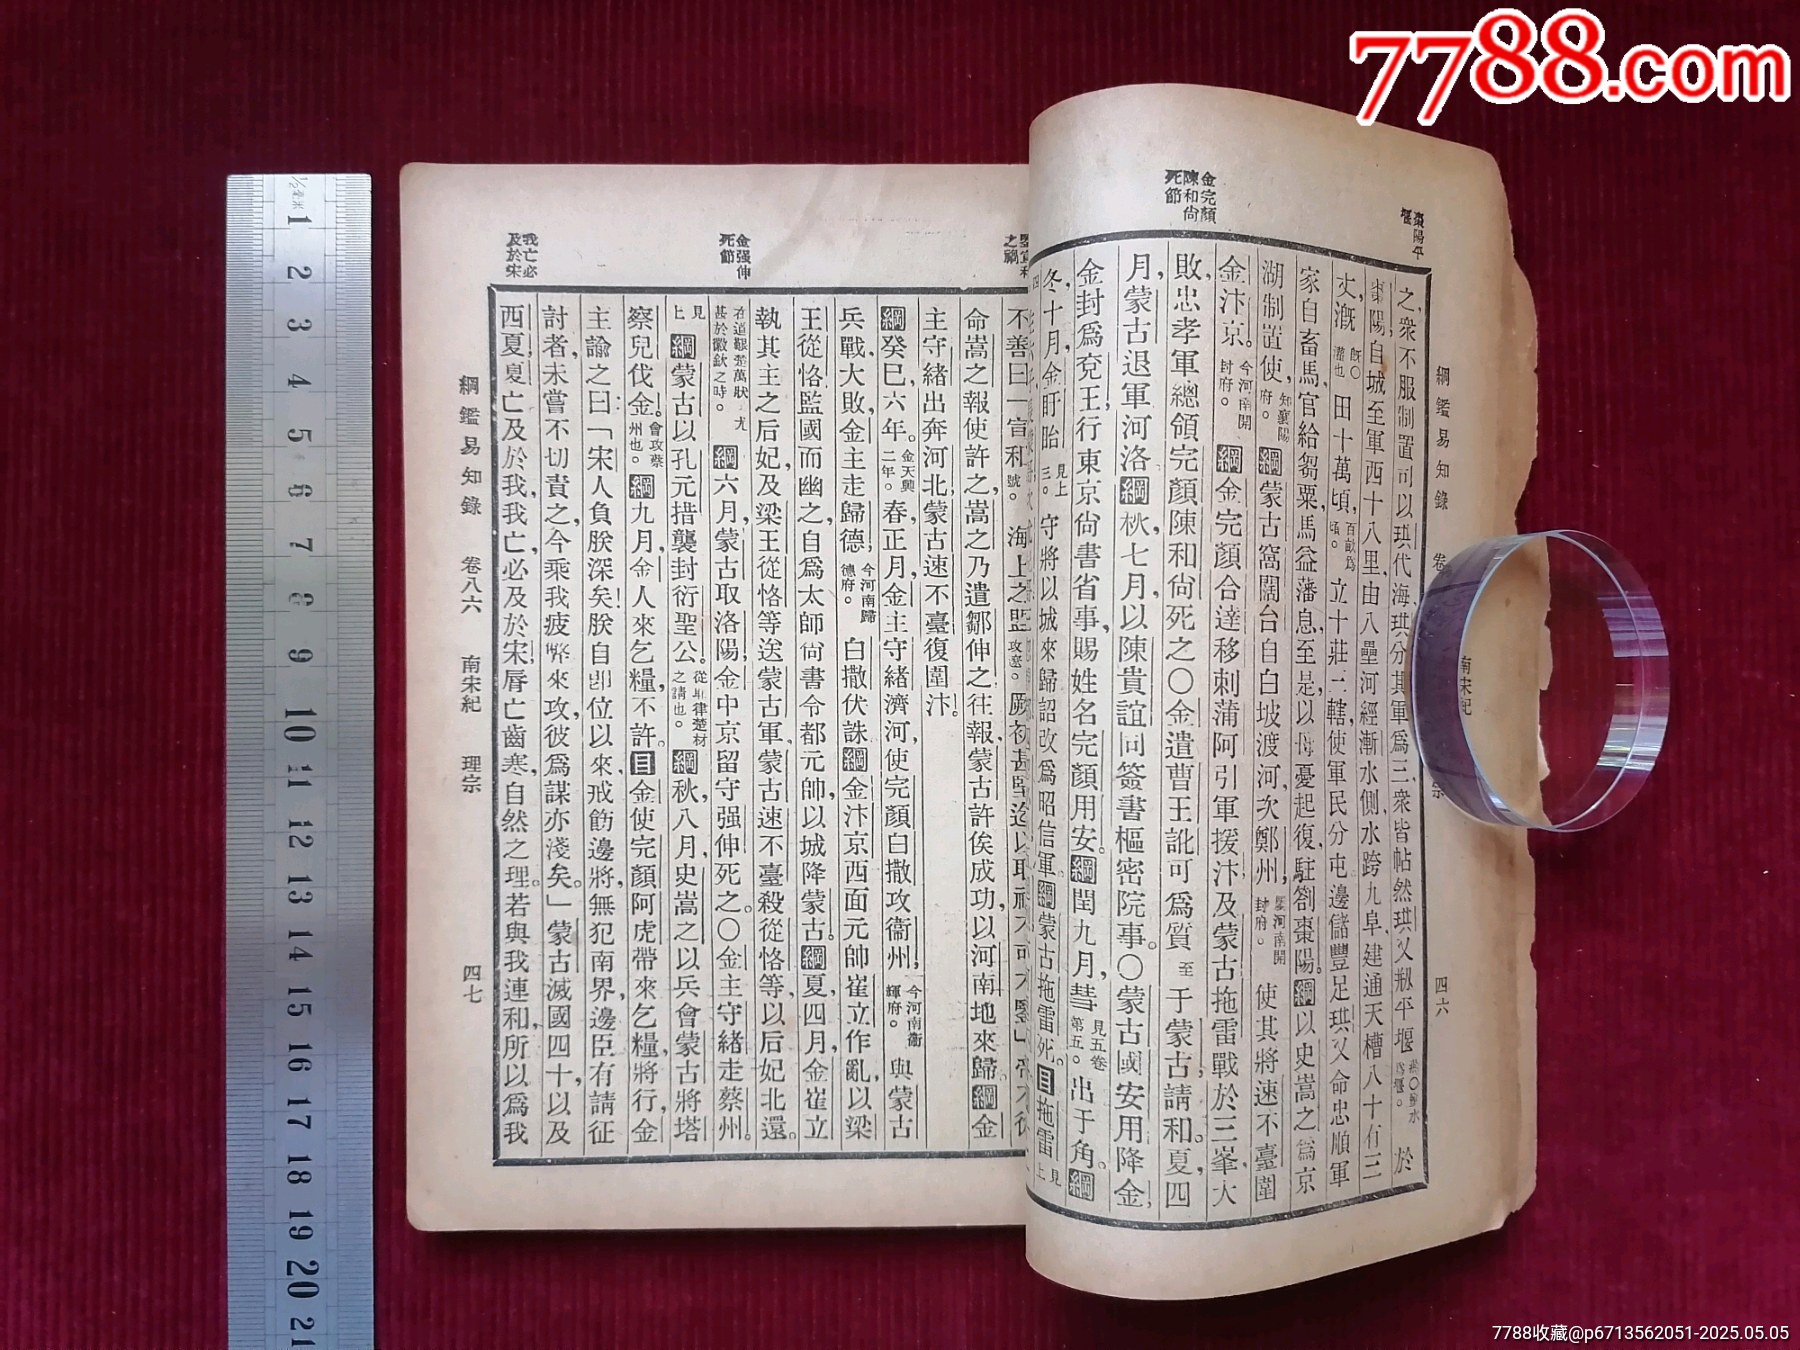 7788.com
棗陽平
堰
金完顏
陳和尙
死節
綱鑑易知錄
四六
之衆不服制置司以珙代海珙分其軍爲三衆皆帖然珙又剏平堰
於
棗陽自城至軍西十八里由八壘河經漸水側水跨九阜建通天槽八十有三
丈漑
田十萬頃
百畝爲
頃。
立十莊三轄使軍民分屯邊儲豐足珙又命忠順軍
家自畜馬官給芻粟馬益蕃息至是以母憂起復駐劄棗陽。綱以史嵩之爲京
湖制置使
知襄陽
府。
綱蒙古窩闊台自白坡渡河次鄭州
封府。
使其將速不臺圍
金汴京。
今河南開
封府。
綱金完顏合達移剌蒲阿引軍援汴及蒙古拖雷戰於三峯大
敗忠孝軍總領完顏陳和尙死之〇金遣曹王訛可爲質
至
于蒙古請和。夏四
月蒙古退軍河洛綱秋七月以陳貴誼同簽書樞密院事。〇蒙古國安用降金
金封爲兗王行東京尙書省事賜姓名完顏用安。綱閏九月彗
見五卷
第五。
出于角。綱
冬十月金盱眙
見上
三。
守將以城來歸詔改爲昭信軍。綱蒙古拖雷死。目拖雷
見
上
之禍
金强伸
死節
我亡必
及於宋
不善曰「宣和
號。
海上之盟
厥初甚堅迄以取禍不可不鑒」帝不從
命嵩之報使許之嵩之乃遣鄒伸之往報蒙古許俟成功以河南地來歸。綱金
主守緒出奔河北蒙古速不臺復圍汴。
綱癸巳六年。
金天興
二年。
春正月金主守緒濟河使完顏白撒攻衞州
今河南衞
輝府。
與蒙古
兵戰大敗金主走歸德
今河南歸
德府。
白撒伏誅綱金汴京西面元帥崔立作亂以梁
王從恪監國而幽之自爲太師尙書令都元帥以城降蒙古。綱夏四月金崔立
執其主之后妃及梁王從恪等送蒙古軍蒙古速不臺殺從恪等以后妃北還。
在道艱楚萬狀尤
甚於徽欽之時。
綱六月蒙古取洛陽金中京留守强伸死之。〇金主守緒走蔡州。
見
上
綱蒙古以孔元措襲封衍聖公。
從耶律楚材
之請也。
綱秋八月史嵩之以兵會蒙古將塔
察兒伐金。
會攻蔡
州也。
綱九月金人來乞糧不許。目金使完顏阿虎帶來乞糧將行金
主諭之曰「宋人負朕深矣!朕自卽位以來戒飭邊將無犯南界邊臣有請征
討者未嘗不切責之今乘我疲弊來攻彼爲謀亦淺矣。」蒙古滅國四十以及
西夏夏亡及於我我亡必及於宋脣亡齒寒自然之理。若與我連和所以爲我
綱鑑易知錄 卷八六 南宋紀 理宗 四七
7788收藏@p6713562051-2025.05.05